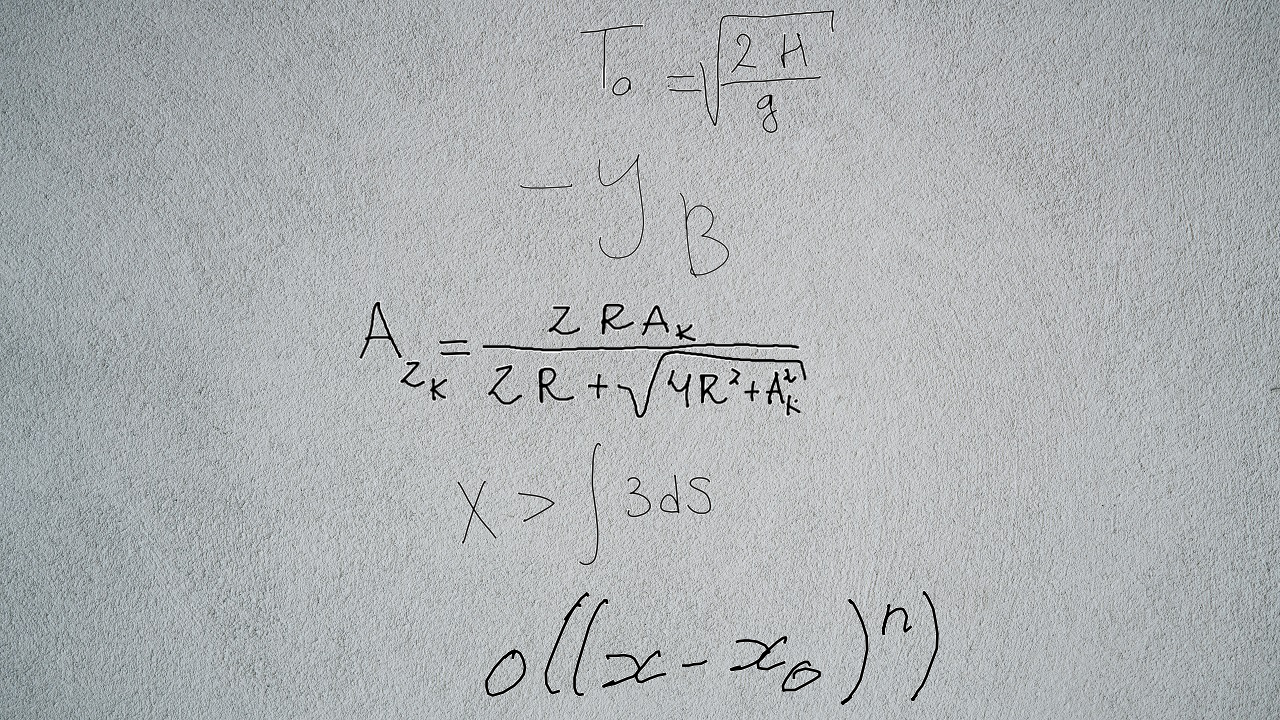 T₀ = √(2H/g)
-y_B
A_{2K} = 2RA_K / (2R + √(4R² + A_K²))
X > ∫ 3dS
o((x - x₀)ⁿ)